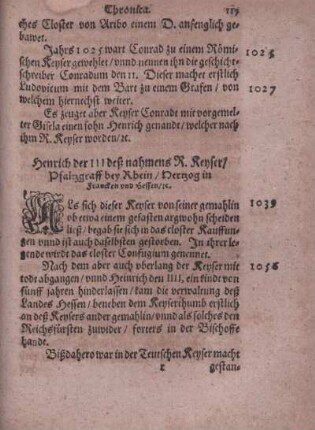 Chronica. 119
ches Closter von Aribo einem D. anfenglich ge-
bawet.
Jahrs 1025 wart Conrad zu einem Römi- 1025
schen Keyser gewehlet/ vnnd nennen ihn die geschicht-
schreiber Conradum den II. Dieser machet erstlich
Ludovicum mit dem Bart zu einem Grafen/ von 1027
welchem hiernechst weiter.
Es zeuget aber Keyser Conradt mit vorgemel-
ter Gisela einen sohn Henrich genandt/ welcher nach
ihm R. Keyser worden/ꝛc.
Henrich der III deß nahmens R. Keyser/
Pfaltzgraff bey Rhein/ Hertzog in
Francken vnd Hessen/ꝛc.
ALs sich dieser Keyser von seiner gemahlin 1039
ob etwa einem gefasten argwohn scheiden
ließ/ begab sie sich in das closter Kauffun-
gen vnnd ist auch daselbsten gestorben. In ihrer le-
gende wirdt das closter Confugium genennet.
Nach dem aber auch vberlang der Keyser mit 1056
todt abgangen/ vnnd Heinrich den IIII, ein kindt von
funff jahren hinderlassen/ kam die verwaltung deß
Landes Hessen/ beneben dem Keyserthumb erstlich
an deß Keysers ander gemahlin/ vnnd als solches den
Reichsfürsten zuwider/ forters in der Bischoffe
hande.
Bißdahero war in der Teutschen Keyser macht
gestan-